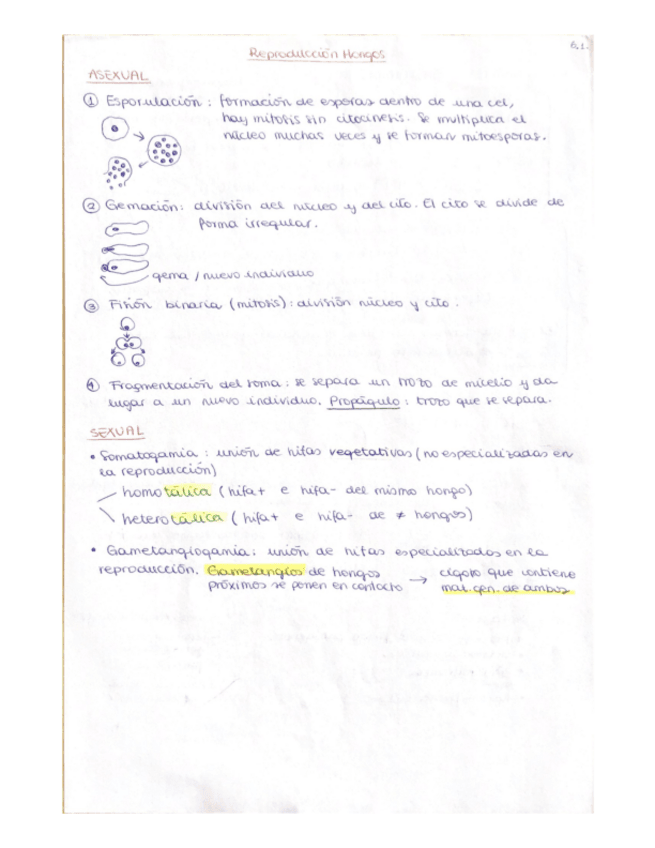 6.1.
Reproducción Hongos
ASEXUAL
① Esporulación : formación de esporas dentro de una cel,
hay mitosis sin citocinesis. Se multiplica el
núcleo muchas veces y se forman mitoesporas.
② Gemación: división del núcleo y del cito. El cito se divide de
forma irregular.
gema / nuevo individuo
③ Fisión binaria (mitosis): división núcleo y cito.
④ Fragmentación del soma: se separa un trozo de micelio y da
lugar a un nuevo individuo. Propágulo: trozo que se separa.
SEXUAL
• Somatogamia : unión de hifas vegetativas (no especializadas en
la reproducción)
homotálica (hifa+ e hifa- del mismo hongo)
heterotálica (hifa+ e hifa- de ≠ hongos)
• Gametangiogamia: unión de hifas especializadas en la
reproducción. Gametangios de hongos
próximos se ponen en contacto → cigoto que contiene
mat. gen. de ambos